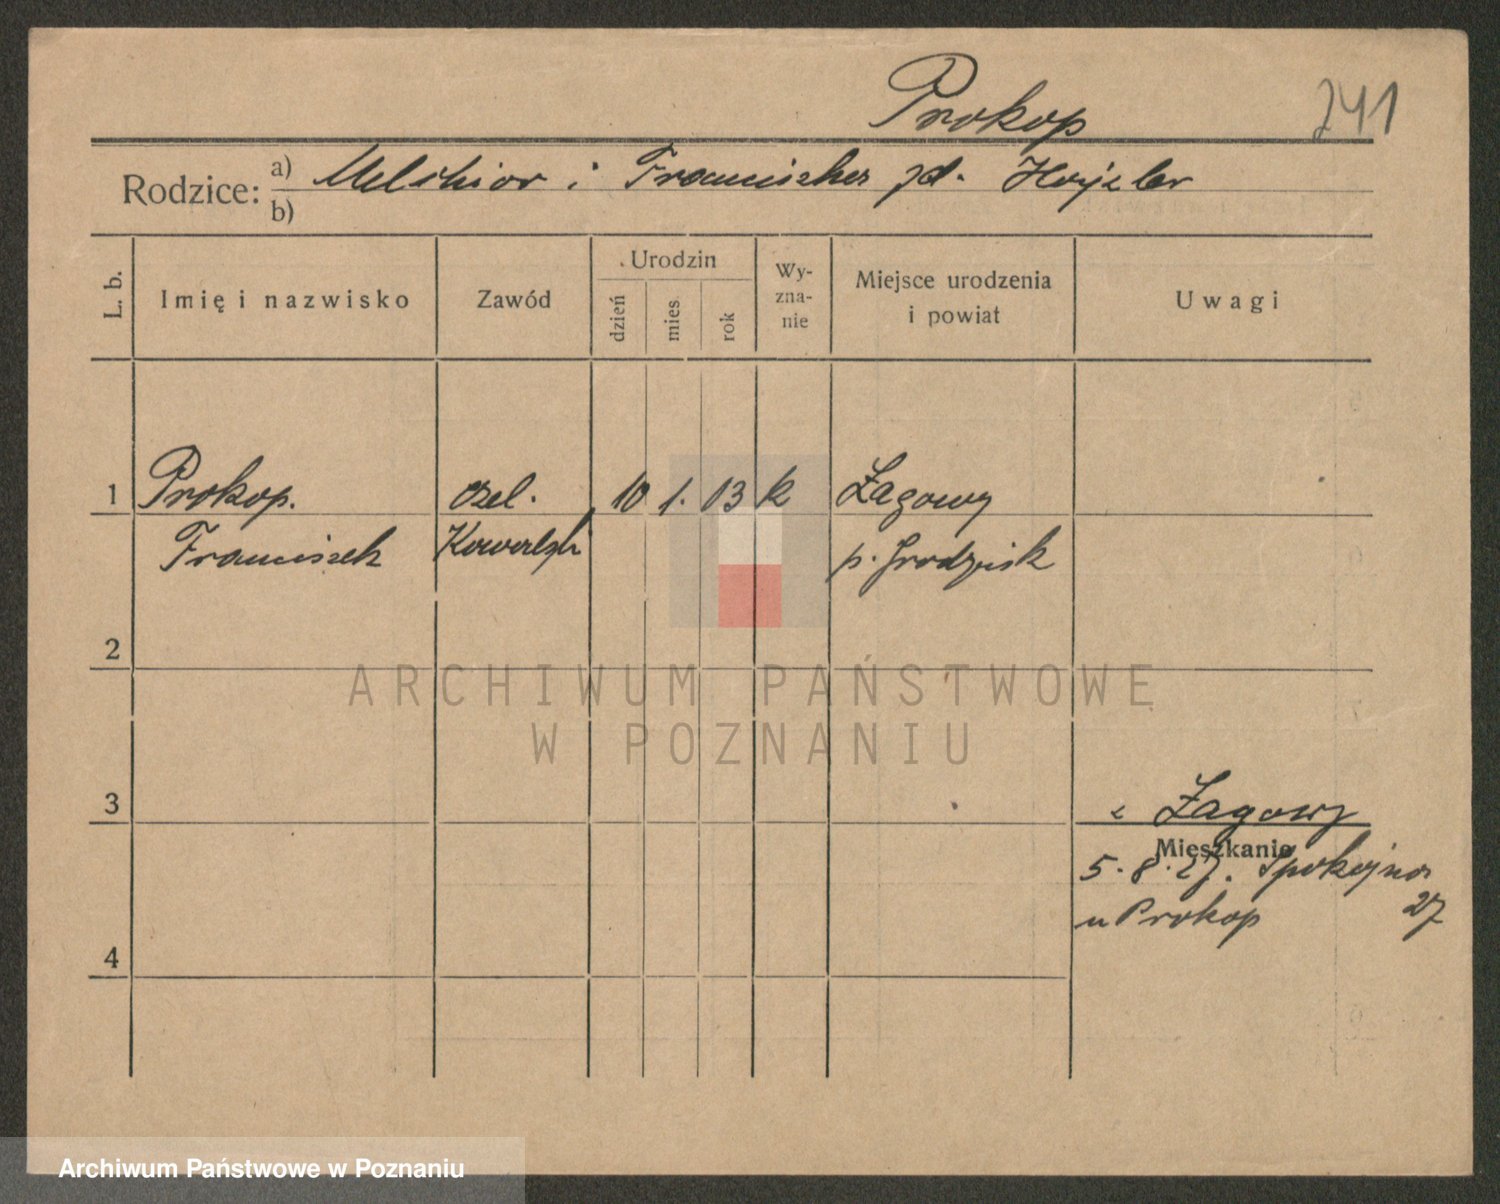 Prokop
241
Rodzice: a) Melchior i Franciszka zd. Hojzler
b)
L. b.
Imię i nazwisko
Zawód
Urodzin
dzień
mies.
rok
Wy-
zna-
nie
Miejsce urodzenia
i powiat
Uwagi
1 Prokop. czel. 10 1. 03 k Łagowy
Franciszek Kowalski p. Grodzisk
2
3
z Łagowy
Mieszkanie
5.8.27. Spokojna
27
u Prokop
4
ARCHIWUM PAŃSTWOWE
W POZNANIU
Archiwum Państwowe w Poznaniu